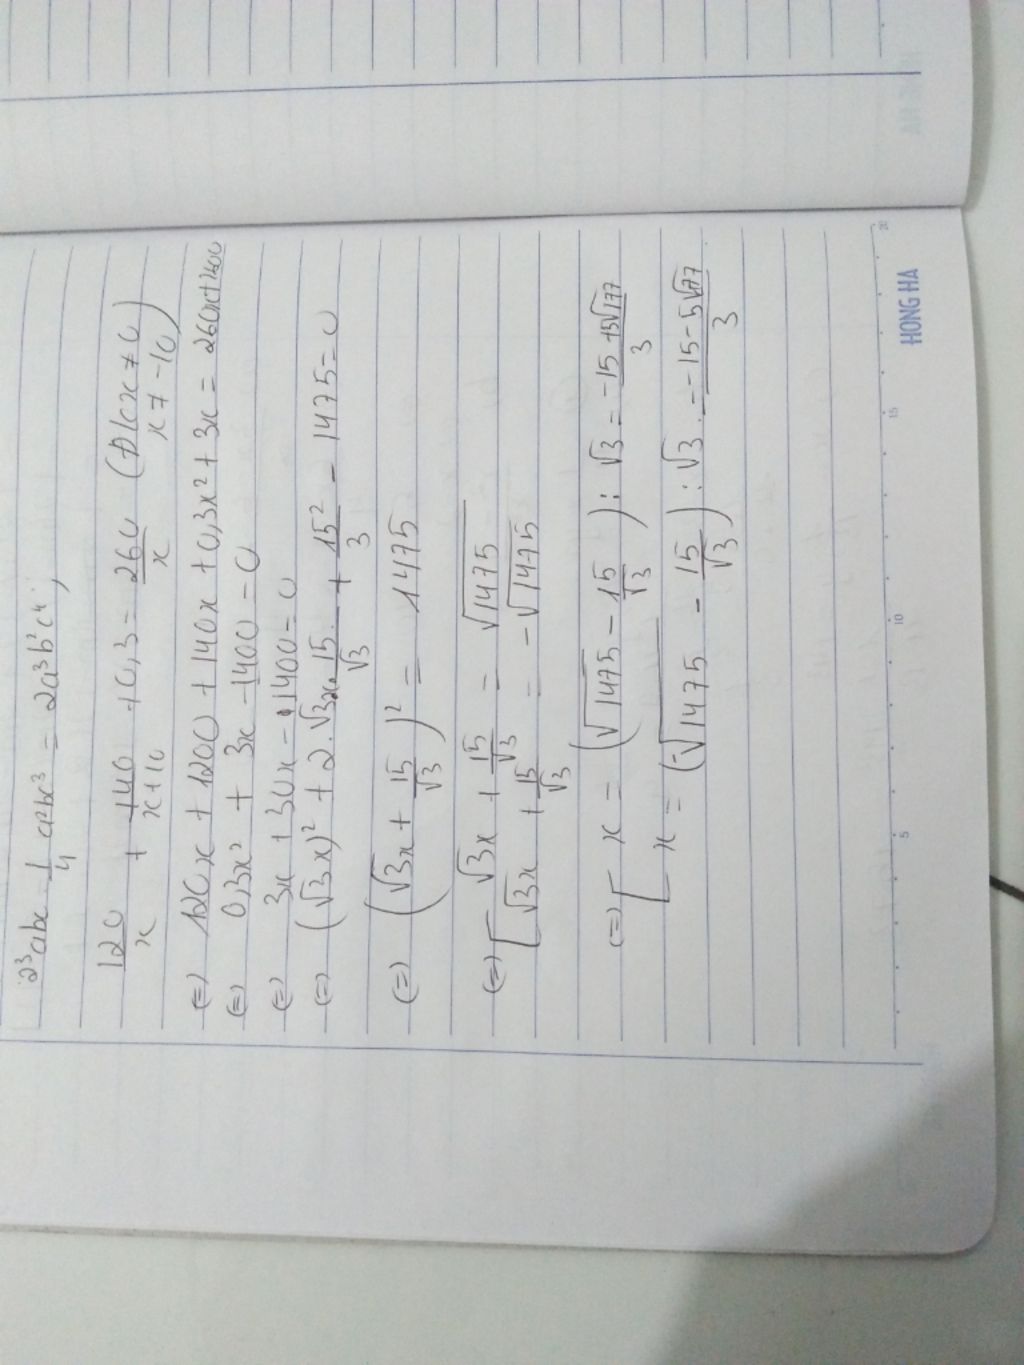 2³abc · 1/4 a²bc³ = 2a³b²c⁴;
120/x + 140/(x+10) + 0,3 = 260/x (Đk x ≠ 0
x ≠ -10)
(=) 120x + 1200 + 140x + 0,3x² + 3x = 260x + 2600
(=) 0,3x² + 3x - 1400 = 0
(=) 3x + 30x - 1400 = 0
(=) (√3x)² + 2.√3x.15/√3 + 15²/3 - 1475 = 0
(=) (√3x + 15/√3)² = 1475
(=) [ √3x + 15/√3 = √1475
√3x + 15/√3 = -√1475
(=) [ x = (√1475 - 15/√3) : √3 = (-15 + 5√177)/3
x = (-√1475 - 15/√3) : √3 = (-15 - 5√177)/3
HONG HA
5 10 15 20